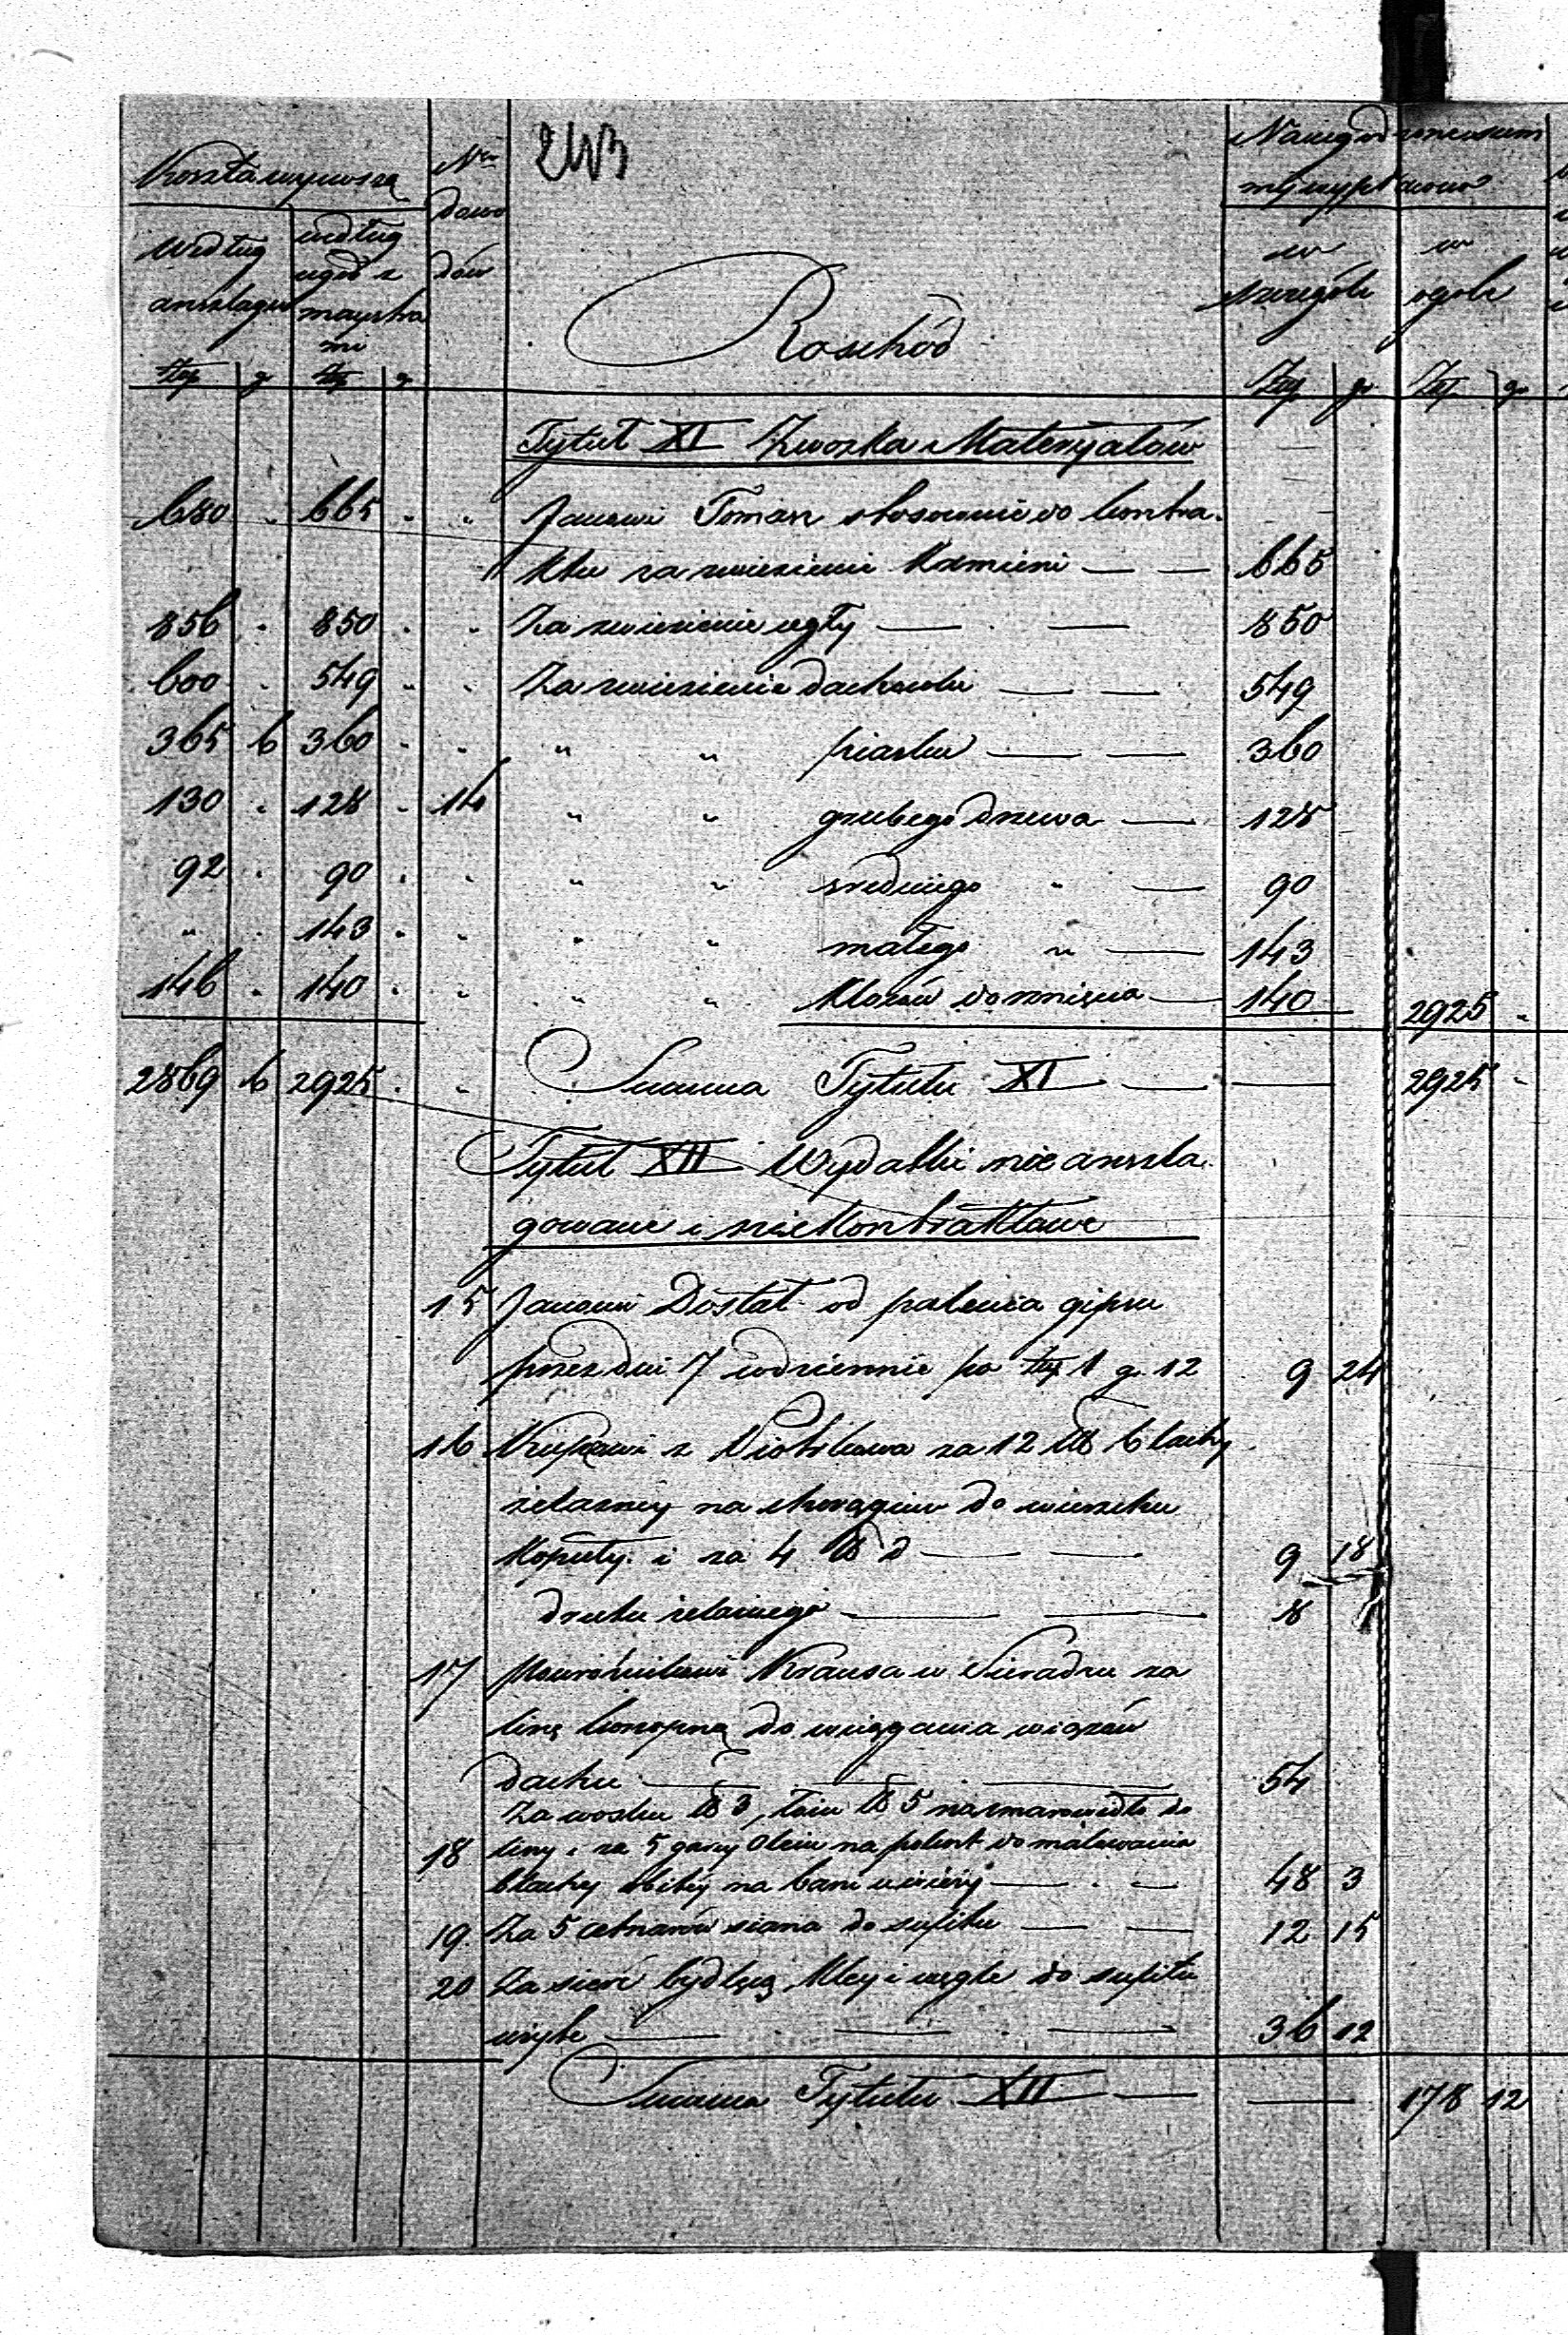 243
Koszta wynoszą | Nra dowodów | Na jego zrewersowany wypłacono
według anszlagu | według ugod z maystrami | Roschód | w szczególe | w ogóle
złp | g | złp | g | Złp | gr | Złp | gr
Tytuł XI Zwózka Materyałów
680 . 665 . " Janowi Toman stosownie do kontra-
ktu za zwiezienie kamieni — — 665
856 . 850 . " Za zwiezienie cegły — — 850
600 . 549 " " Za zwiezienie dachówki — — 549
365 6 360 . " " " piasku — — 360
130 . 128 . 14 " " grubego drzewa — 128
92 . 90 . " " " sredniego " — 90
" . 143 . " " " małego " — 143
146 . 140 . " " " Klocow do rznięcia — 140 2925 "
2869 6 2925 . " Summa Tytułu XI — — 2925 "
Tytuł XII Wydatki nie anszla-
gowane i niekontraktowe
15 Janowi Dostał od palenia gipsu
przez dni 7 codziennie po złp 1 g. 12 9 24
16 Kupcowi z Piotrkowa za 12 ℔ blachy
żelazney na chorągiew do wierzchu
kopuły i za 4 ℔ — — 9 18
drutu żelaznego — — 8
17 Powroźnikowi Krausa w Sieradzu za
linę konopną do wciągania wiązań
dachu — — — 54
Za wosku ℔ 3, łoiu ℔ 5 na smarowidło do
18 liny i za 5 garcy Oleiu na pokost do malowania
blachy bitey na bani wieży — — 48 3
19 Za 5 cetnarów siana do sufitu — — 12 15
20 Za sierć bydlęcą, kley i węgle do sufitu
użyte — — — 36 12
Summa Tytułu XII — — 178 12